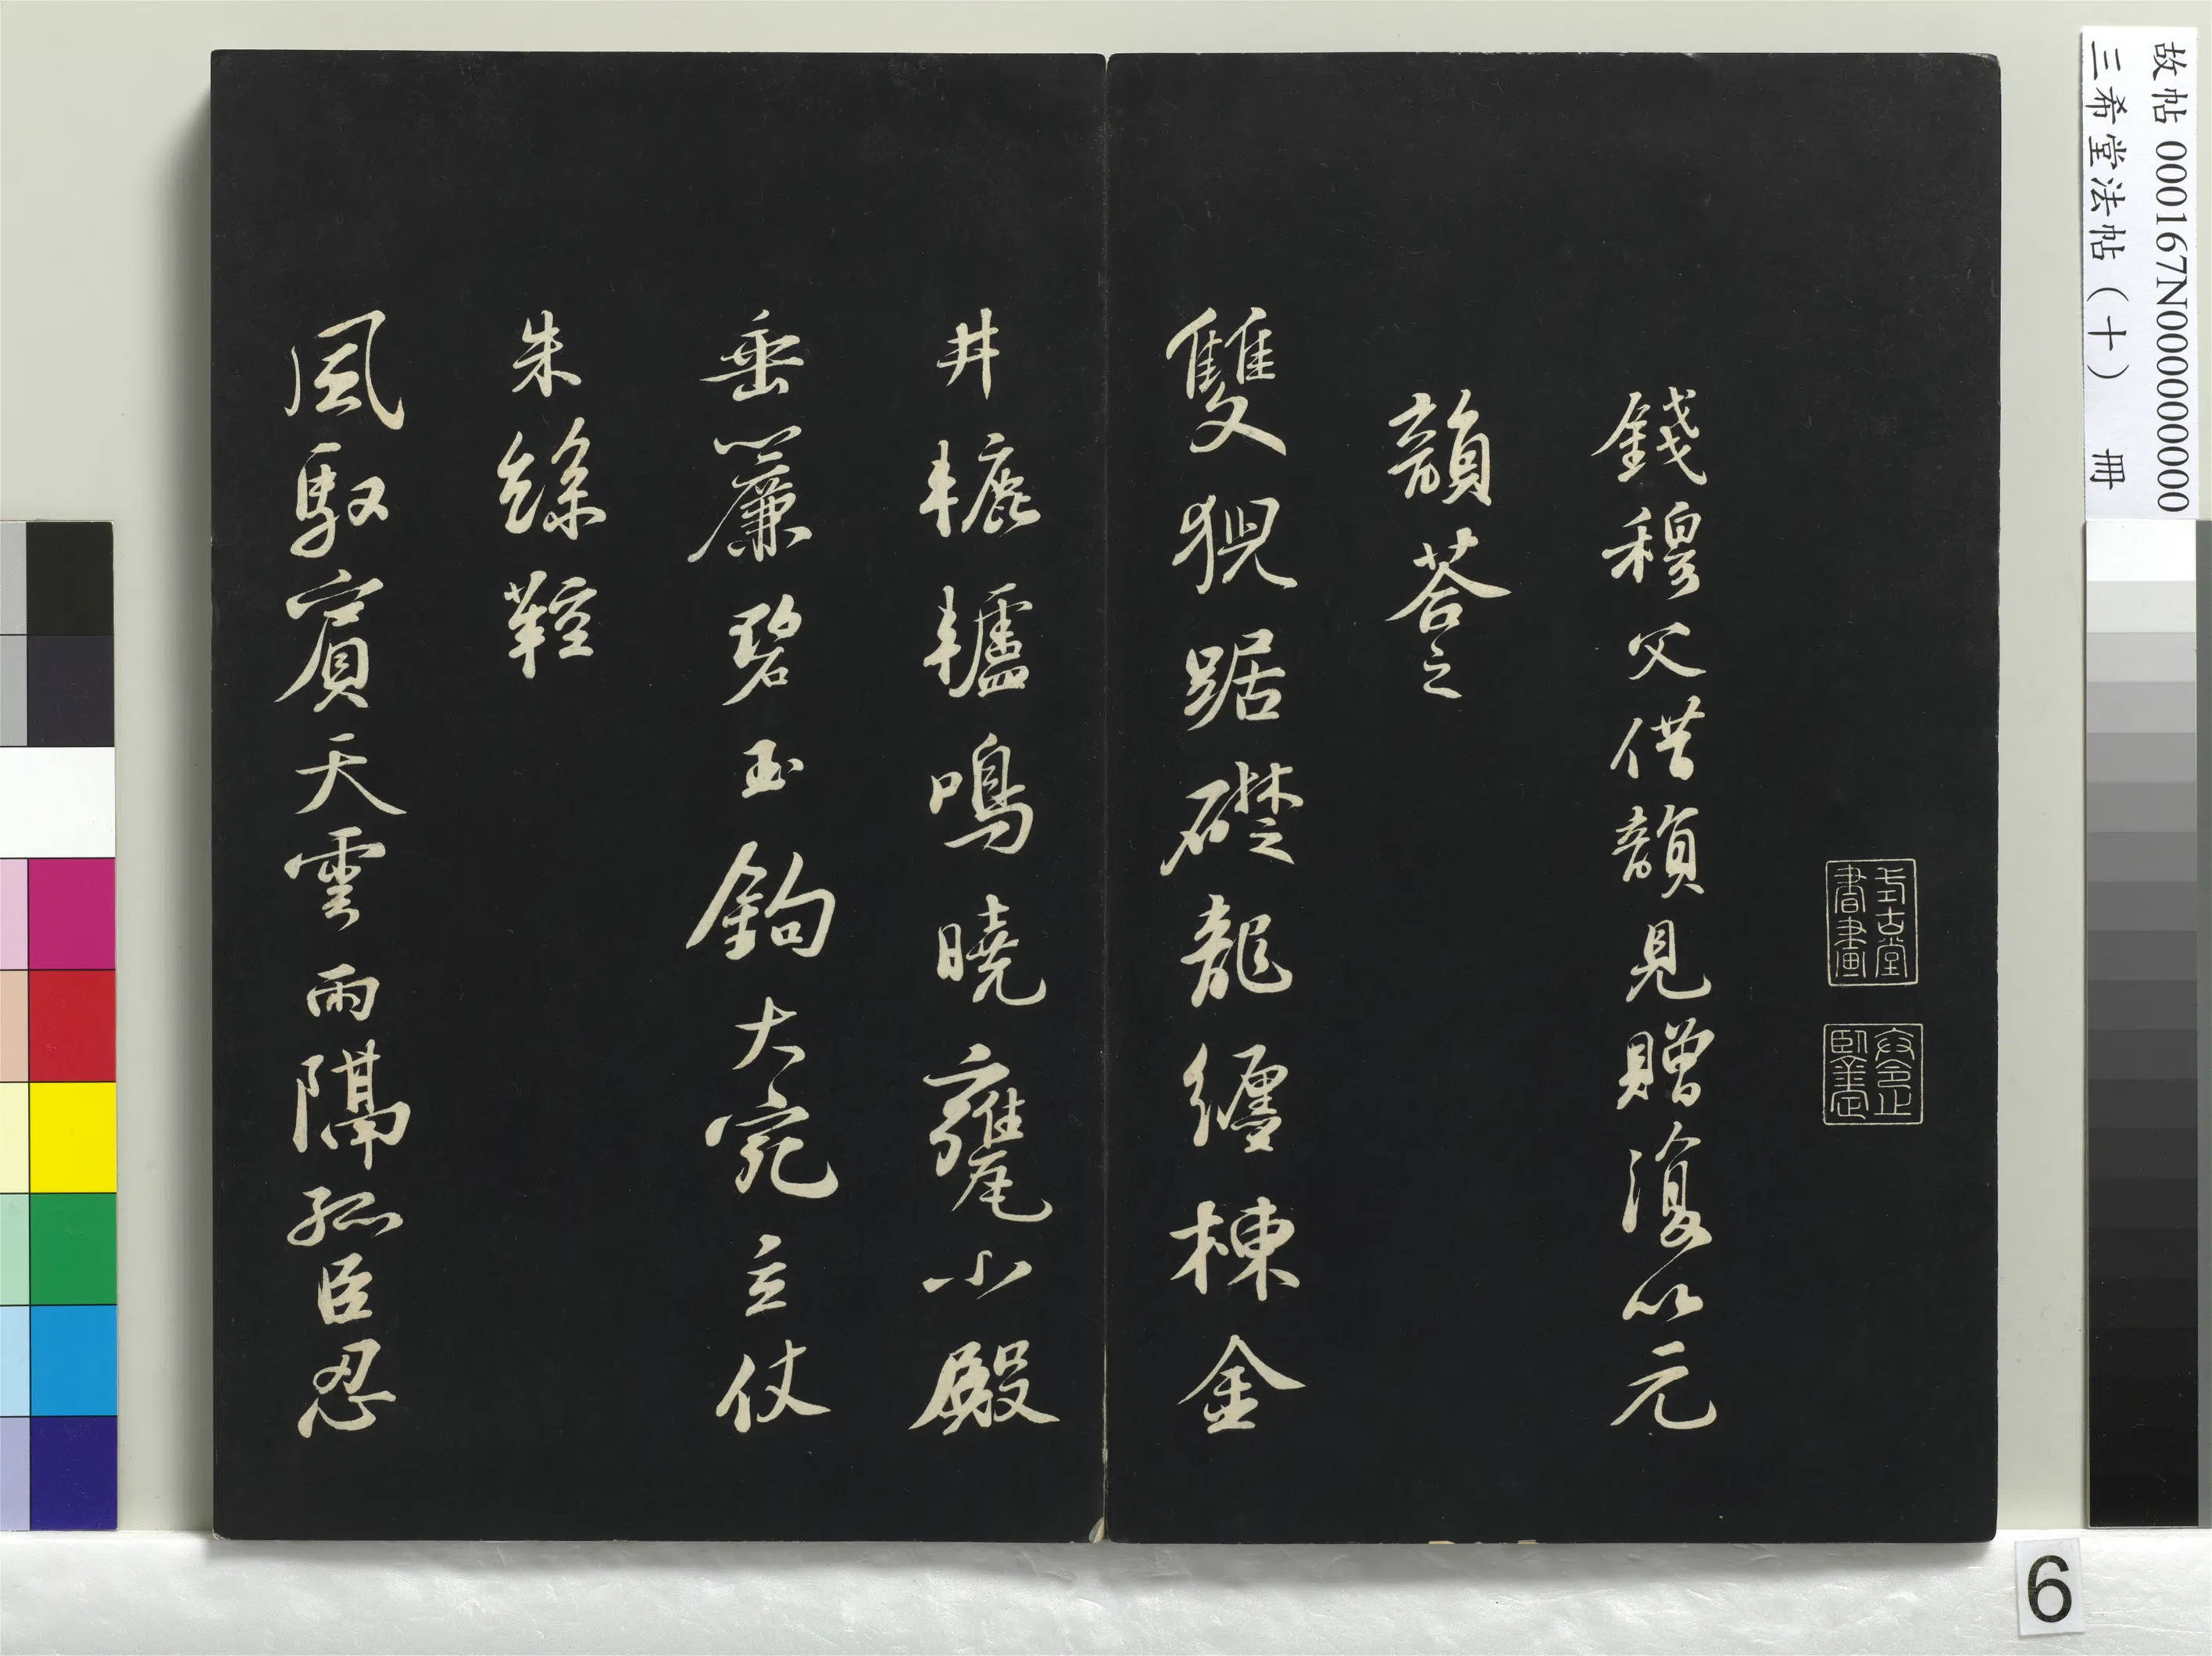 故帖 000167N000000000
三希堂法帖（十） 冊
式古堂書畫
卞令之鑒定
錢穆父借韻見贈復以元
韻荅之
雙猊踞礎龍纏棟金
井轆轤鳴曉甕小殿
垂簾碧玉鉤大宛立仗
朱絲鞚
風馭賓天雲雨隔孤臣忍
6